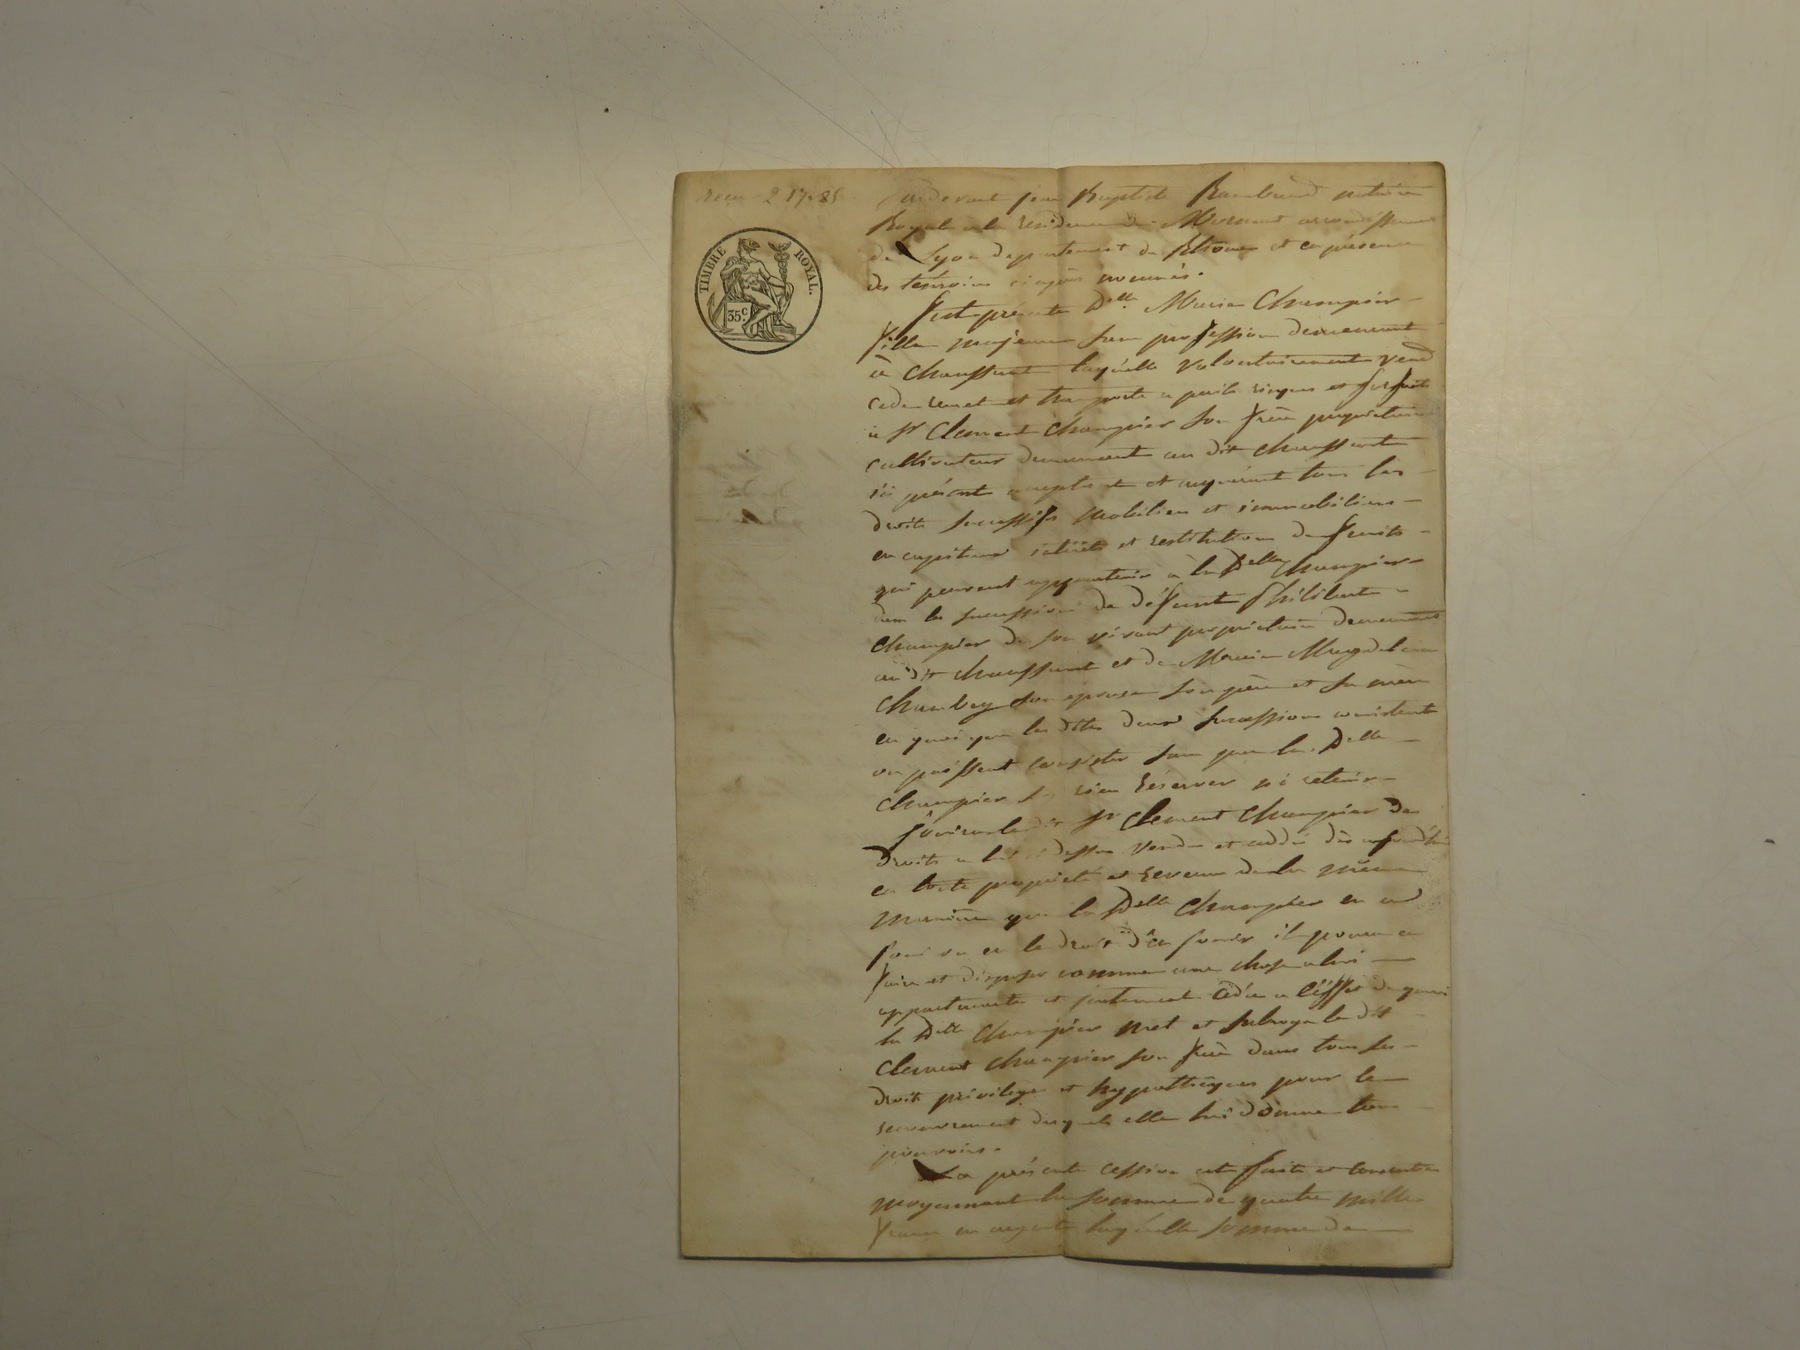 TIMBRE ROYAL.
35 c.
Pardevant jean Baptiste notaire
Royal a la residence de Mornant arrondissement
de Lyon departement du Rhone et en présence
des temoins ci après nommés.
Fut présente Dlle Marie Champier
fille majeure sans profession demeurant
à Chaussant laquelle volontairement vend
cede remet et transporte a perils risques et forfait
à Sr Clement Champier son frère propriétaire
cultivateur demeurant au dit Chaussant
ici présent acceptant et acquérant tous les
droits successifs mobiliers et immobiliers
en capitaux intérêts et restitution de fruits
qui peuvent appartenir à la Dlle Champier
dans les successions de défunt Philibert
Champier de son vivant propriétaire demeurant
au dit Chaussant et de Marie Magdelaine
son épouse son père et sa mère
en quoi que les dites deux successions consistent
ou puissent consister sans que la Dlle
Champier rien réserver ni retenir
Jouira le dit Sr Clement Champier des
droits a lui ci dessus vendus et cédés dès
en toute propriété et revenu de la même
manière que la Dlle Champier en a
joui ou eu le droit d'en jouir il pourra en
faire et disposer comme une chose a lui
appartenante et cédée a l'éffet de quoi
la Dlle Champier met et subroge le dit
Clement Champier son frère dans tous ses
droits privileges et hypothèques pour le
recouvrement desquels elle lui donne tous
pouvoirs.
La présente cession est faite et
moyennant la somme de quatre mille
francs en argent laquelle somme de